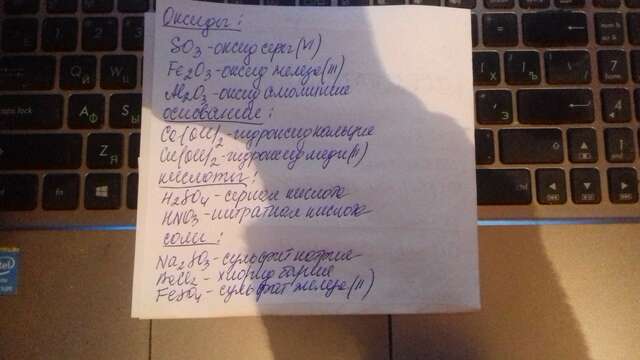 Оксиды:
SO3-оксид серы(VI)
Fe2O3-оксид железа(III)
Al2O3-оксид алюминия
основание:
Ca(OH)2-гидроксид кальция
Cu(OH)2-гидроксид меди(II)
кислоты:
H2SO4-серная кислота
HNO3-нитратная кислота
соли:
Na2SO3-сульфит натрия
BaCl2-хлорид бария
FeSO4-сульфат железа(II)
intel